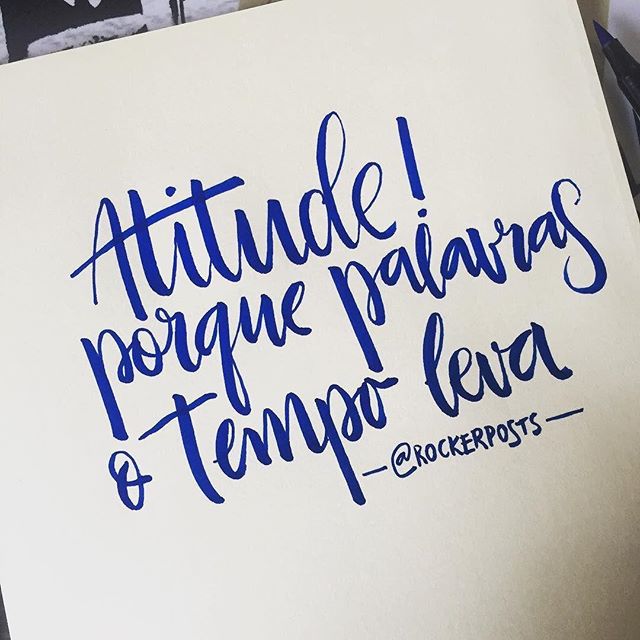 Atitude!
porque palavras
o tempo leva
—@ROCKERPOSTS—